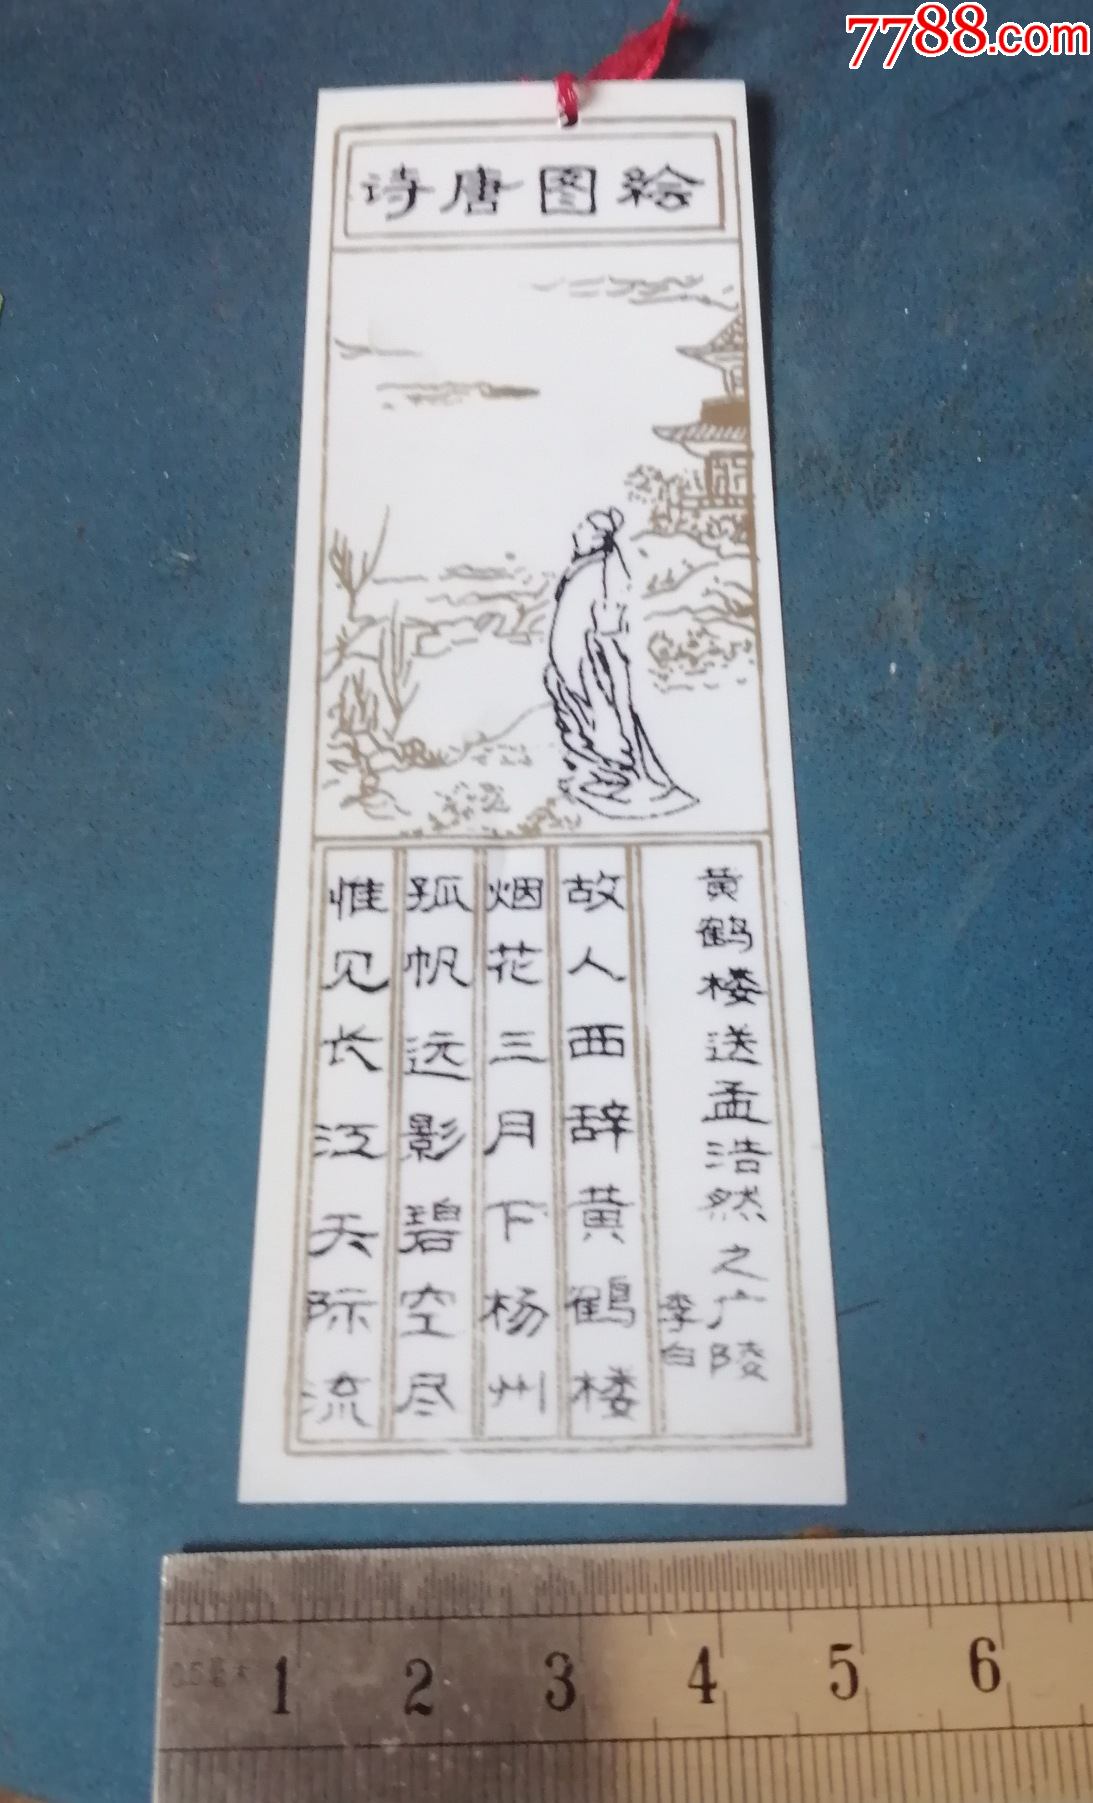 7788.com
絵图唐诗
黄鹤楼送孟浩然之广陵
李白
故人西辞黄鹤楼
烟花三月下杨州
孤帆远影碧空尽
惟见长江天际流
0.5毫米
1 2 3 4 5 6